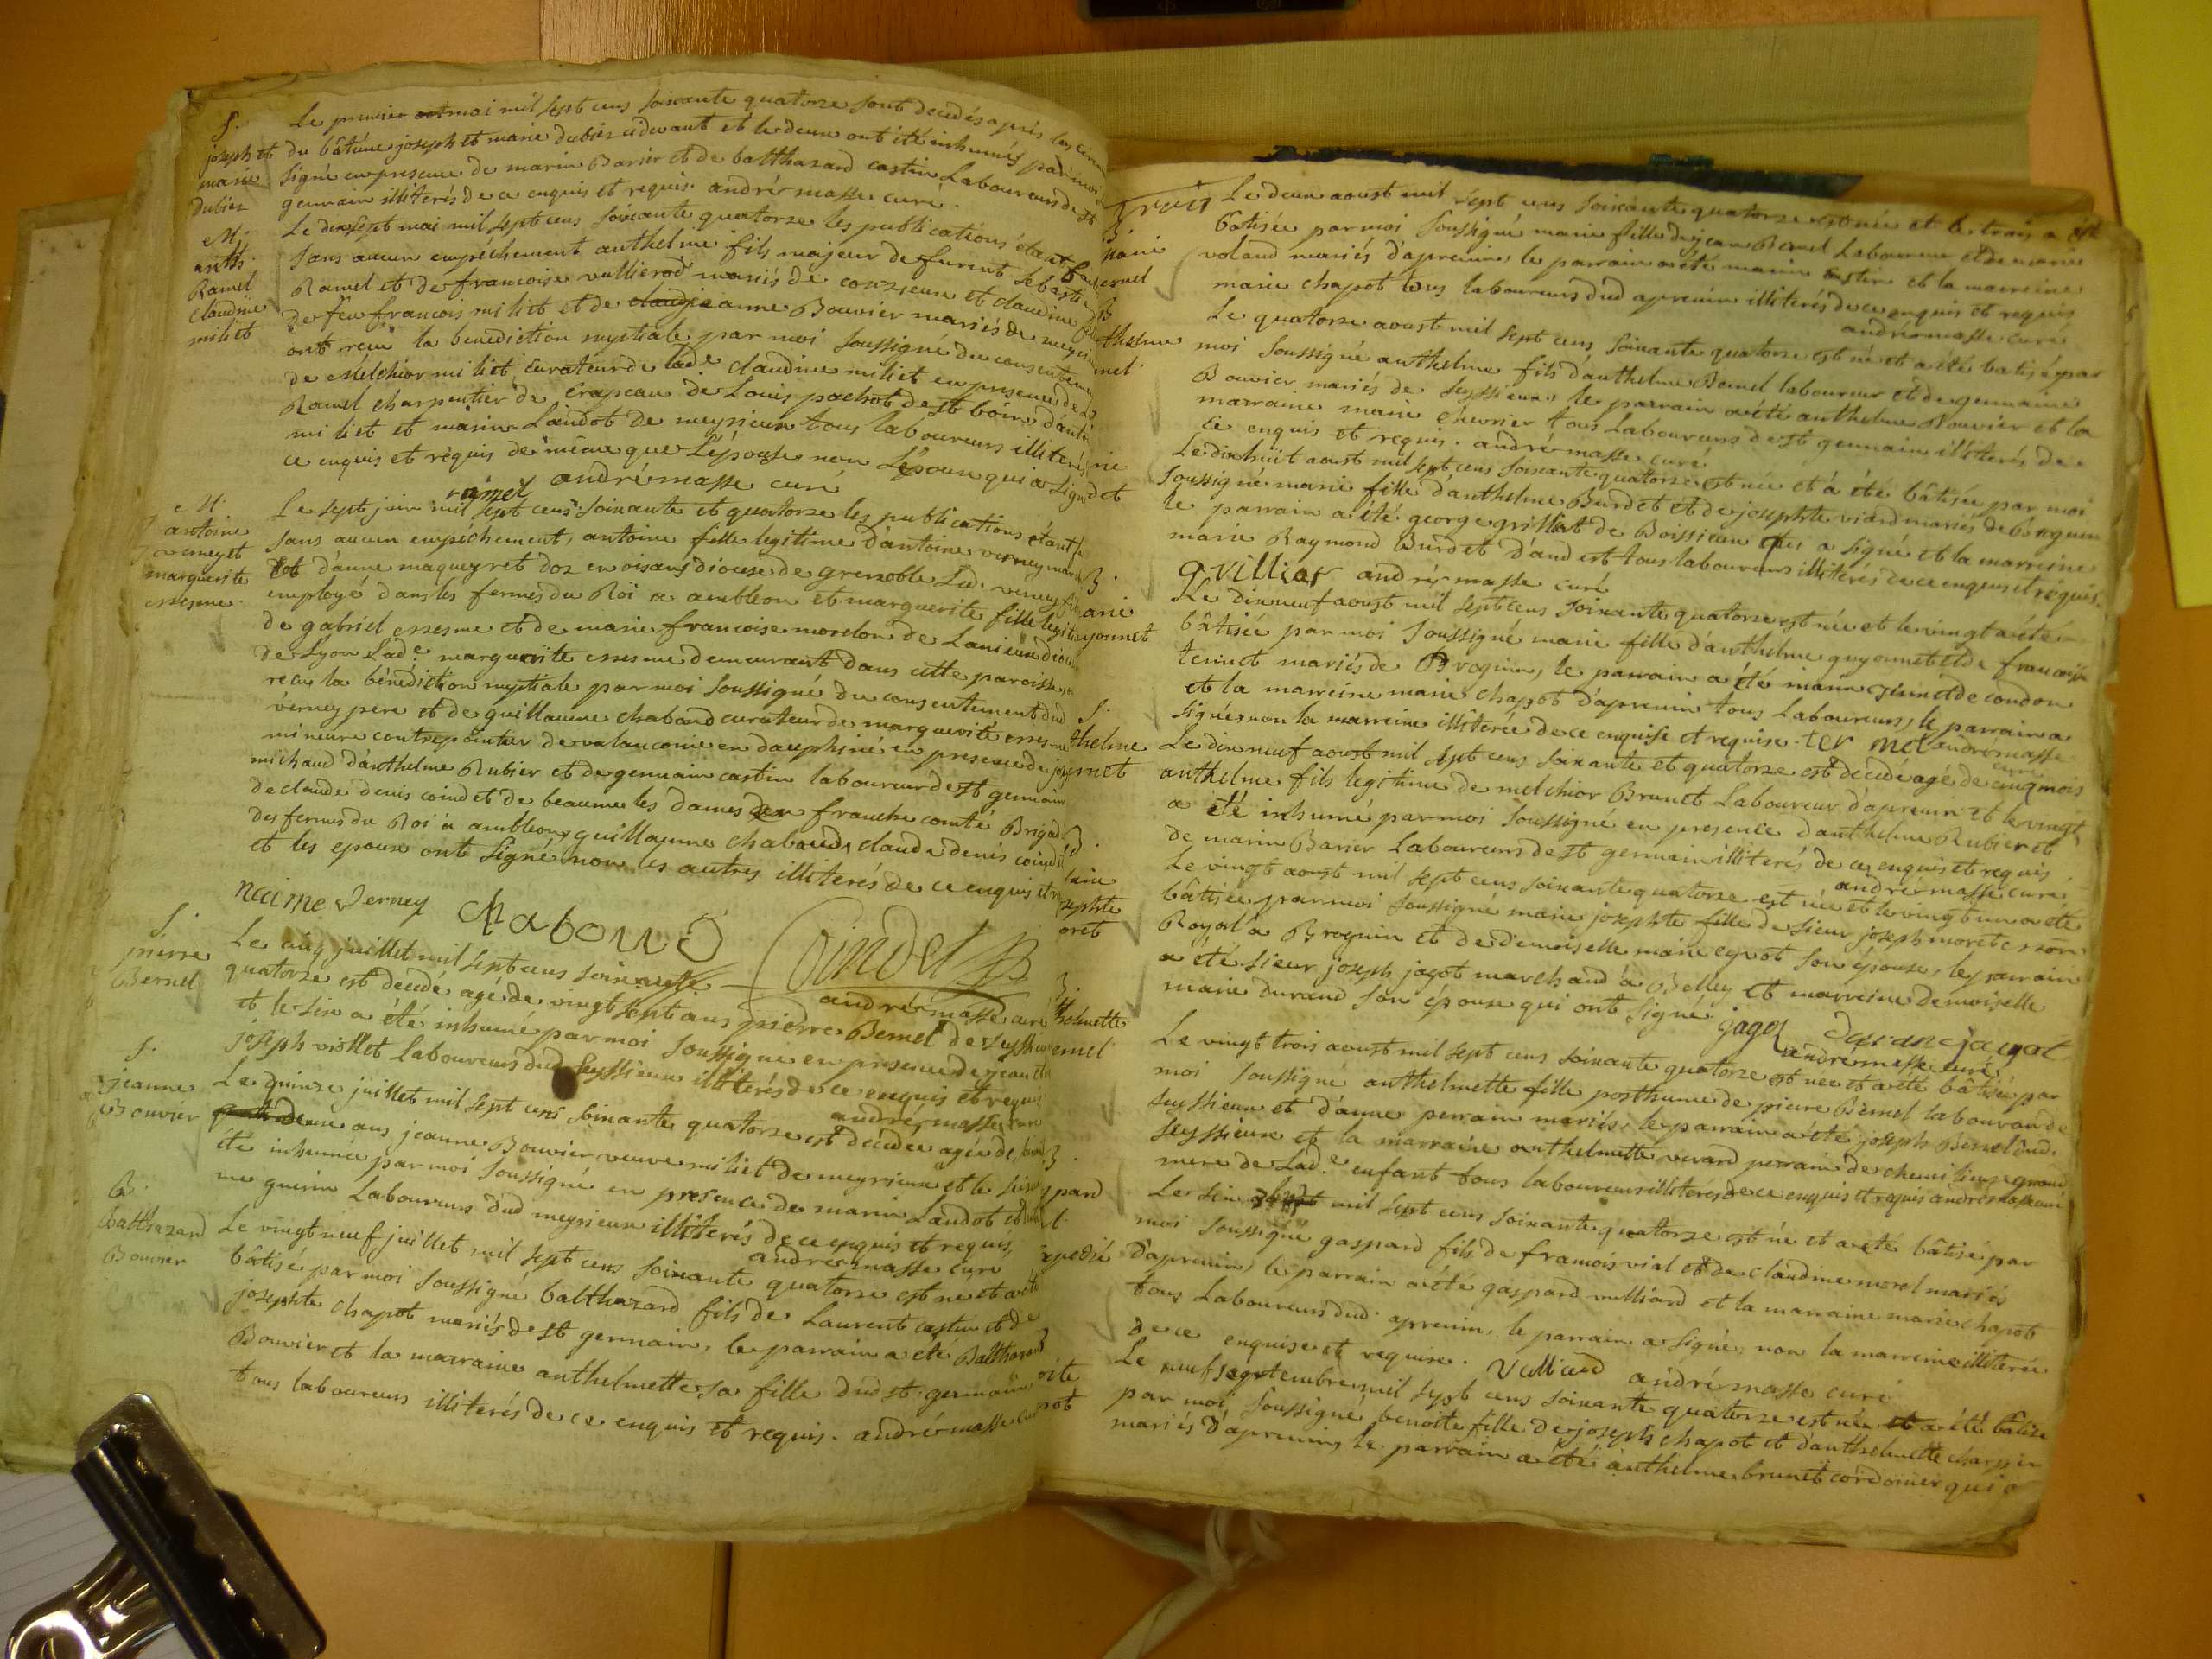 S.
joseph et
marie
dubiez
Le premier mai mil sept cens soixante quatorze sont decedés après la
du bâtême joseph et marie dubiez cidevant et le deux ont été inhumés par moi
signé en presence de marin Barier et de balthazard castin Laboureurs de st
germain illiterés de ce enquis et requis. andré masse curé.
M.
anth.
Ramel
claudine
miliet
Le dixsept mai mil sept cens soixante quatorze les publications étant
sans aucun empêchement anthelme fils majeur de furent sebastien
Ramel et de francoise vullierod mariés de conzieux et claudine
de feu francois miliet et de anne Bouvier mariés de meyrieu
ont recu la benediction nuptiale par moi soussigné du consentement
de Melchior miliet curateur de lad.e claudine miliet en presence de
Ramel charpentier de Crapeau de Louis pachot de st bois d'anth
miliet et marin Landot de meyrieux tous laboureurs illiterés
ce enquis et requis de même que L'épouse non L'époux qui a signé
ramel andré masse curé
M.
antoine
verney et
marguerite
essesme
Le sept juin mil sept cens soixante et quatorze les publications étant
sans aucun empêchement, antoine fille legitime d'antoine verney
et d'anne maqueyret d'oz en oisans diocese de grenoble Led. verney
employé dans les fermes du Roi a ambleon et marguerite fille legit
de gabriel essesme et de marie francoise morelon de Lanieux dioc
de Lyon Lad.e marguerite essesme demeurant dans cette paroisse
recu la bénédiction nuptiale par moi soussigné du consentement dud
verney pere et de guillaume chabaud curateur de marguerite essesme
mineure contrepointier de valancorie en dauphiné en presence de
michaud d'anthelme Rubier et de germain castin laboureur de st germain
de claude denis coindet de beaume les dames en franche comté Brigad
des fermes du Roi a ambleon guillaume chabaud, claude denis coindet
et les epoux ont signé non les autres illiterés de ce enquis et
verney chaboud
Coindet
andré masse curé
S.
pierre
Bernel
Le cinq juillet mil sept cens soixante
quatorze est decedé agé de vingt sept ans pierre Bernel de seyssieu
et le six a été inhumé par moi soussigné en presence de jean
joseph viollet laboureurs dud seyssieux illiterés de ce enquis et requis
andré masse curé
S.
jeanne
Bouvier
Le quinze juillet mil sept cens soixante quatorze est décédée agée de
deux ans jeanne Bouvier veuve miliet de meyrieux et le seize
été inhumée par moi soussigné en presence de marin Landot et
me guerin Laboureurs dud meyrieux illiterés de ce enquis et requis
andré masse curé
B.
Balthazard
Bouvier
Le vingt neuf juillet mil sept cens soixante quatorze est né et a été
bâtisé par moi soussigné balthazard fils de Laurent castin et de
josephte chapot mariés de st germain, le parrain a été Balthazard
Bouvier et la marraine anthelmette sa fille dud st germain
tous laboureurs illiterés de ce enquis et requis. andré masse curé
B.
marie
Le deux aoust mil sept cens soixante quatorze est née et le trois a été
bâtisée par moi soussigné marie fille de jean Bernel Laboureur et de marie
volaud mariés d'apremin, le parrain a été marin castin et la marreine
marie chapot tous laboureurs dud apremin illiterés de ce enquis et requis
andré masse curé
B
thelme
Le quatorze aoust mil sept cens soixante quatorze est né et a été batisé par
moi soussigné anthelme fils d'anthelme Bernel laboureur et de germaine
Bouvier mariés de seyssieux, le parrain a été anthelme Bouvier et la
marraine marie chevrier tous Laboureurs de st germain illiterés de
ce enquis et requis. andré masse curé
Le dixhuit aoust mil sept cens soixante quatorze est née et a été bâtisée par moi
soussigné marie fille d'anthelme Burdet et de josephte viard mariés de Brognin
le parrain a été george grilliat de Boissieu qui a signé et la marreine
marie Raymond Burdet d'aud est tous laboureurs illiterés de ce enquis et requis.
grilliat andré masse curé
B.
arie
uyonnet
Le dixneuf aoust mil sept cens soixante quatorze est née et le vingt a été
bâtisée par moi soussigné marie fille d'anthelme guyonnet et de francoise
ternet mariés de Brognin, le parrain a été marin et de condon
et la marreine marie chapot d'apremin tous Laboureurs, le parrain a
signé non la marreine illiterée de ce enquise et requise. andré masse
curé
S.
thelme
Le dixneuf aoust mil sept cens soixante et quatorze est decedé agé de cinq mois
anthelme fils legitime de melchior Brunet Laboureur d'apremin et le vingt
a été inhumé par moi soussigné en presence d'anthelme Rubier et
de marin Barier Laboureurs de st germain illiterés de ce enquis et requis
andré masse curé
B.
sephte
oret
Le vingt aoust mil sept cens soixante quatorze est née et le vingt un a été
bâtisée par moi soussigné marie josephte fille de sieur joseph moret
Royal a Brognin et de demoiselle marie eynot son épouse, le parrain
a été sieur joseph jagot marchand a Belley et marreine demoiselle
marie durand son épouse qui ont signé. jagot durane jagot
andré masse curé
B.
thelmette
ernel
Le vingt trois aoust mil sept cens soixante quatorze est née et a été bâtisée par
moi soussigné anthelmette fille posthume de pierre Bernel laboureur de
seyssieux et d'anne perrain mariés, le parrain a été joseph Bernel dud.
seyssieux et la marraine anthelmette verard perrain de chemilieu grand
mere de Lad.e enfant tous laboureurs illiterés de ce enquis et requis andré masse curé
B.
spard
expedié
Le six mil sept cens soixante quatorze est né et a été bâtisé par
moi soussigné gaspard fils de francois vial et de claudine morel mariés
d'apremin, le parrain a été gaspard vulliard et la marraine marie chapot
tous Laboureurs dud apremin, le parrain a signé, non la marreine illiterée
de ce enquise et requise. Vulliard andré masse curé
B
oite
pot
Le neuf septembre mil sept cens soixante quatorze est née et a été bâtisée
par moi soussigné benoite fille de joseph chapot et d'anthelmette charpin
mariés d'apremin, le parrain a été anthelme brunet cordonier qui a